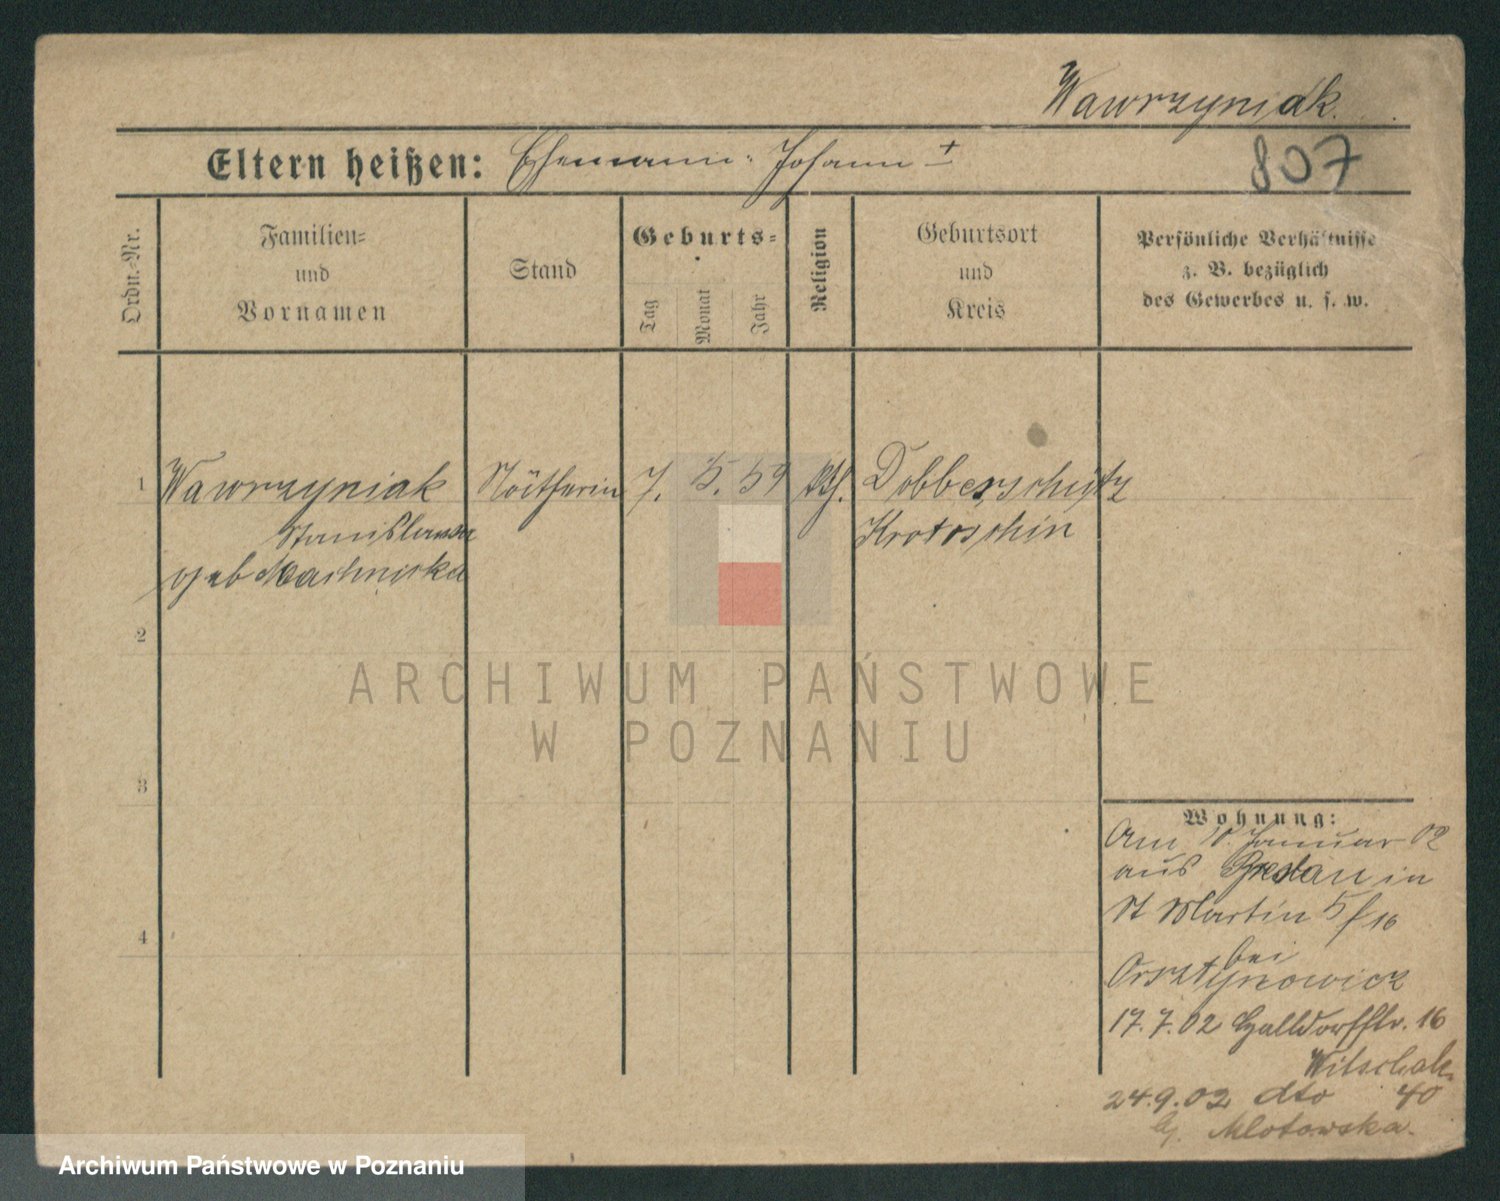 Wawrzyniak.
Eltern heißen: Ehemann: Johann +
807
Ordn.-Nr.
Familien-
und
Vornamen
Stand
Geburts-
Tag
Monat
Jahr
Religion
Geburtsort
und
Kreis
Persönliche Verhältnisse
z. B. bezüglich
des Gewerbes u. s. w.
1 Wawrzyniak Nätherin 7. 5. 59 kth. Dobberschütz
Stanislawa Krotoschin
geb
2
3
4
ARCHIWUM PAŃSTWOWE
W POZNANIU
Wohnung:
Am 10. Januar 02
aus Breslau in
St Martin 5/16
bei
17.7.02 Halldorfstr. 16
Witschak
24.9.02 dto 40
b/ Mlotowska.
Archiwum Państwowe w Poznaniu